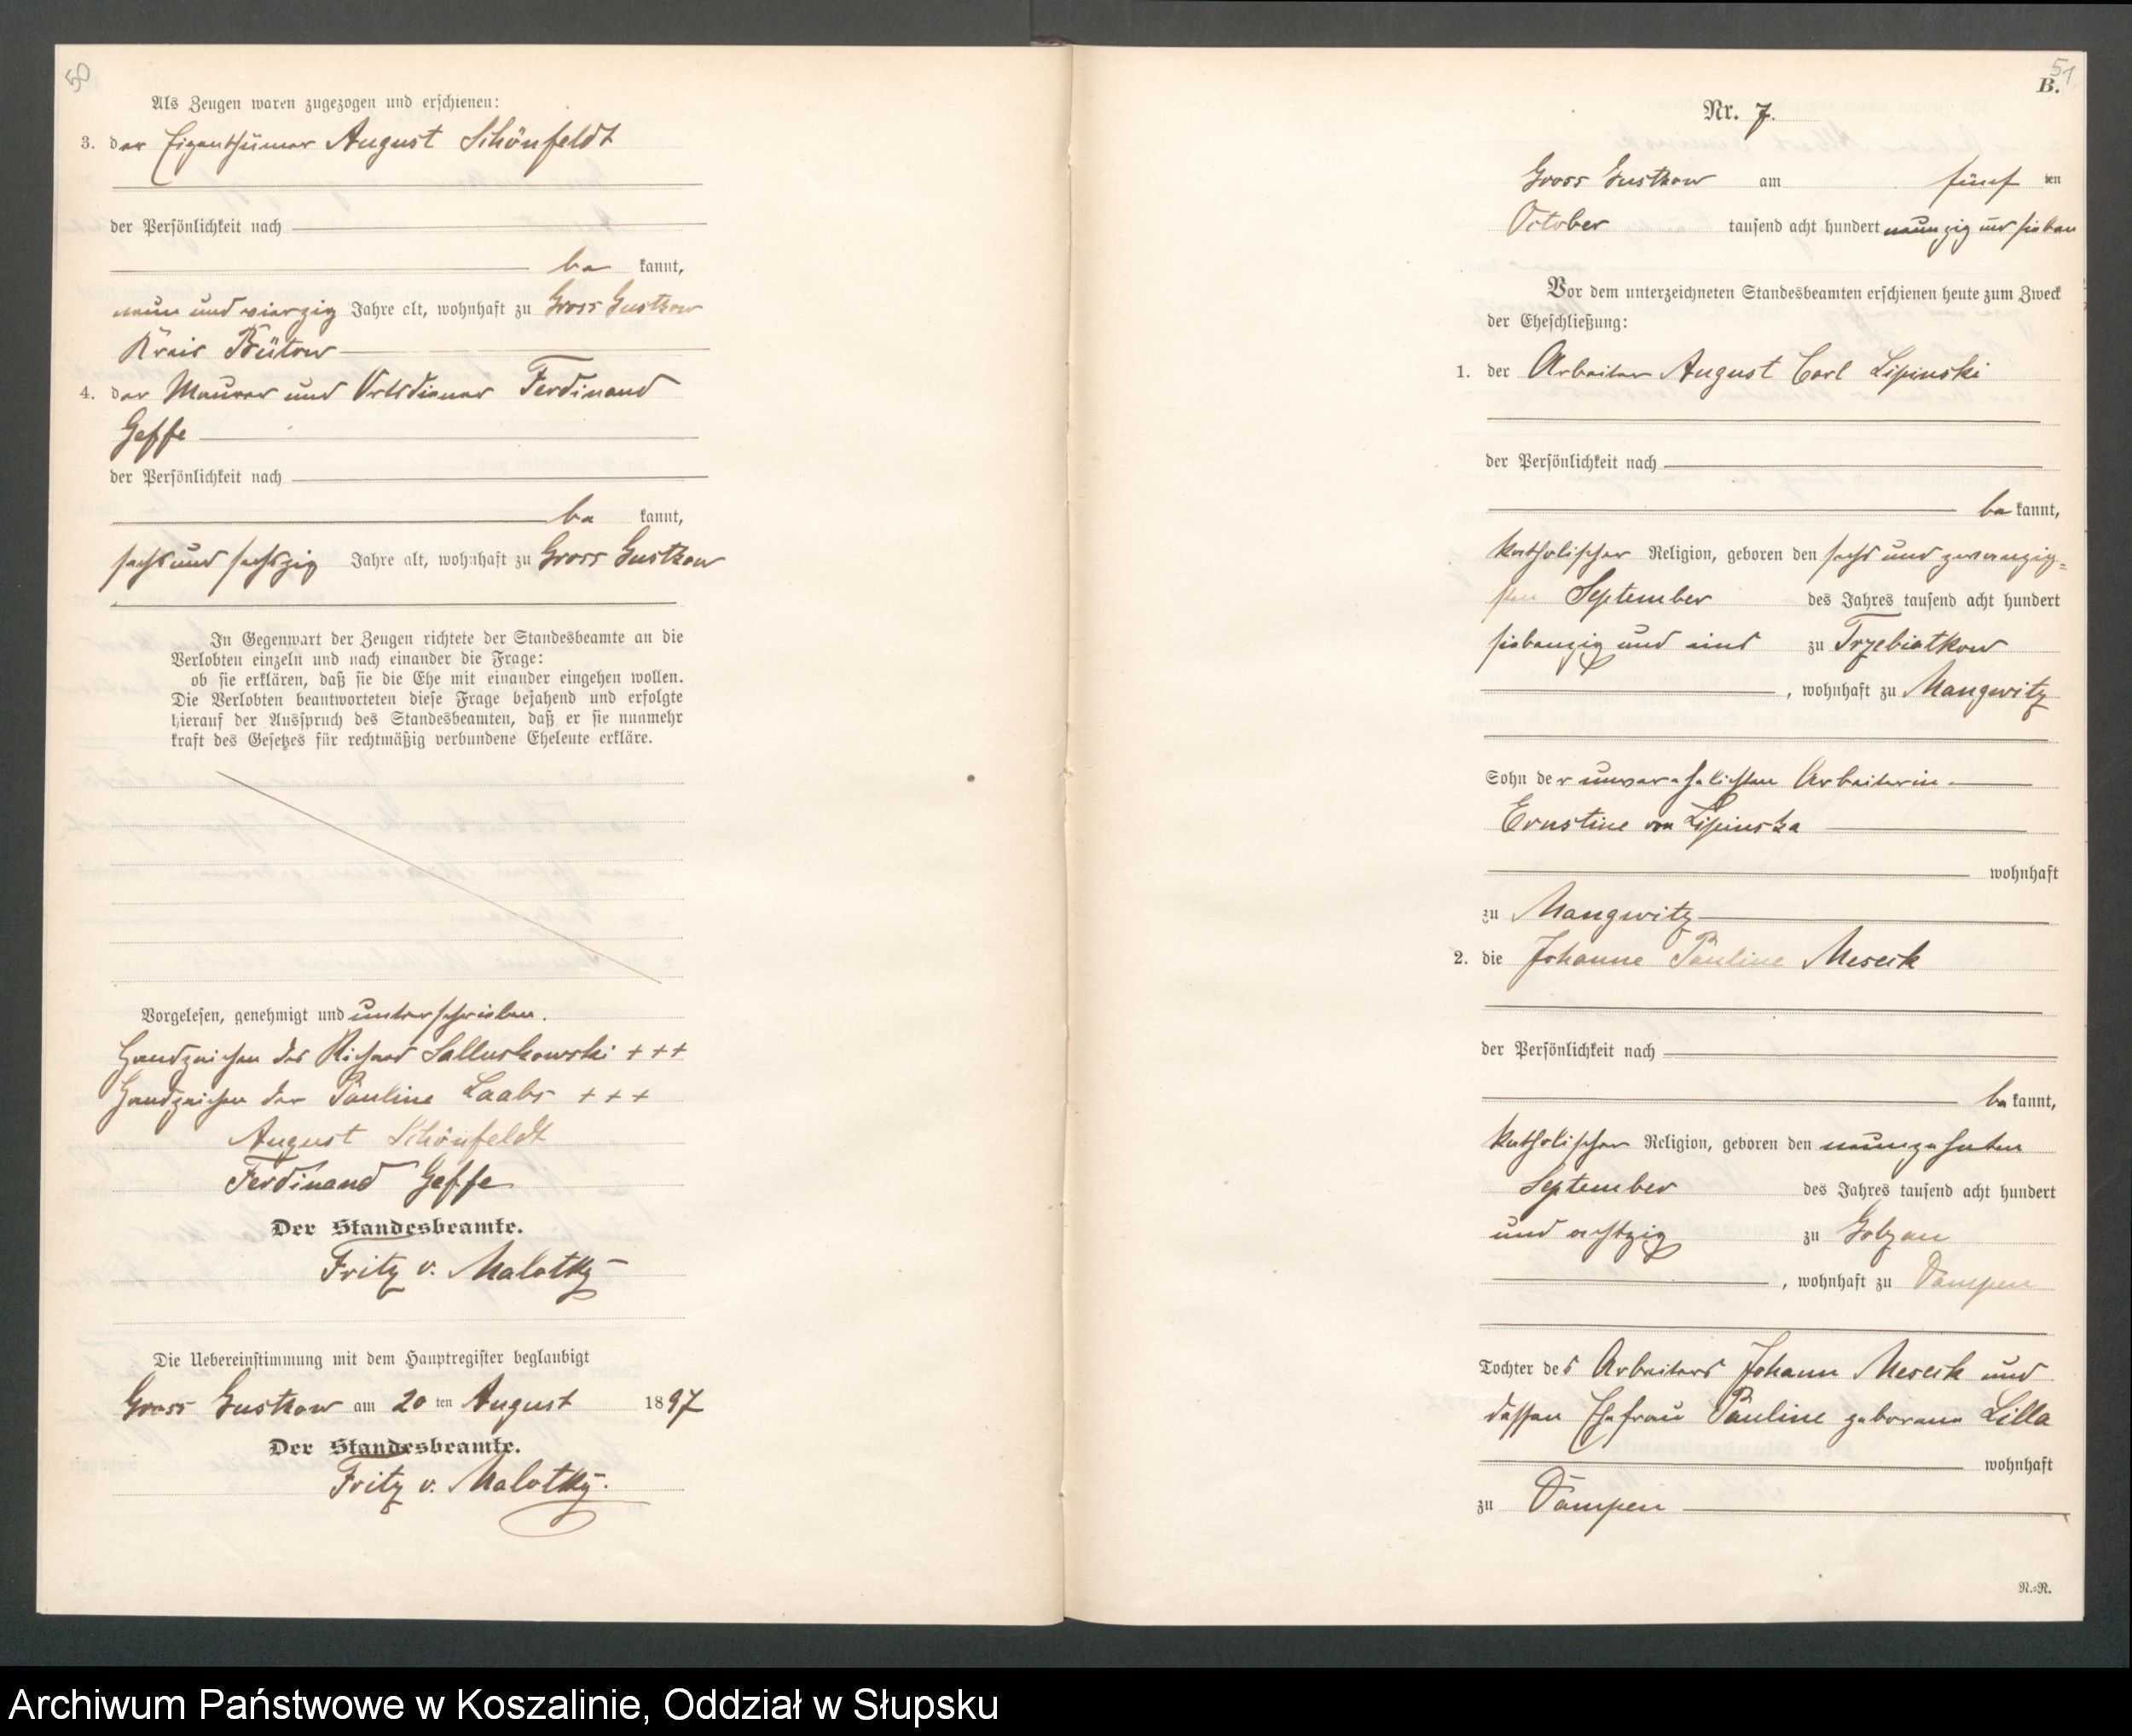 50
Als Zeugen waren zugezogen und erschienen:
3. der Eigenthümer August Schönfeldt
der Persönlichkeit nach
be kannt,
neun und vierzig Jahre alt, wohnhaft zu Gross Gustkow
Kreis Bütow
4. der Maurer und Ortsdiener Ferdinand
Geffe
der Persönlichkeit nach
be kannt,
sechs und sechszig Jahre alt, wohnhaft zu Gross Gustkow
In Gegenwart der Zeugen richtete der Standesbeamte an die
Verlobten einzeln und nach einander die Frage:
ob sie erklären, daß sie die Ehe mit einander eingehen wollen.
Die Verlobten beantworteten diese Frage bejahend und erfolgte
hierauf der Ausspruch des Standesbeamten, daß er sie nunmehr
kraft des Gesetzes für rechtmäßig verbundene Eheleute erkläre.
Vorgelesen, genehmigt und unterschrieben.
Handzeichen des Richard Salluskowski + + +
Handzeichen der Pauline Laabs + + +
August Schönfeldt
Ferdinand Geffe
Der Standesbeamte.
Fritz v. Malotky
Die Uebereinstimmung mit dem Hauptregister beglaubigt
Gross Gustkow am 20 ten August 1897
Der Standesbeamte.
Fritz v. Malotky.
51
B.
Nr. 7.
Gross Gustkow am fünf ten
October tausend acht hundert neunzig und sieben
Vor dem unterzeichneten Standesbeamten erschienen heute zum Zweck
der Eheschließung:
1. der Arbeiter August Carl Lipinski
der Persönlichkeit nach
be kannt,
katholischer Religion, geboren den sechs und zwanzig-
sten September des Jahres tausend acht hundert
siebenzig und eins zu Trzebiatkow
, wohnhaft zu Mangwitz
Sohn der unverehelichten Arbeiterin
Ernstine von Lipinska
wohnhaft
zu Mangwitz
2. die Johanne Pauline Mescik
der Persönlichkeit nach
be kannt,
katholischer Religion, geboren den neunzehnten
September des Jahres tausend acht hundert
und achtzig zu Golzau
, wohnhaft zu Dampen
Tochter des Arbeiters Johann Mescik und
dessen Ehefrau Pauline geborene Lilla
wohnhaft
zu Dampen
N.-R.
Archiwum Państwowe w Koszalinie, Oddział w Słupsku